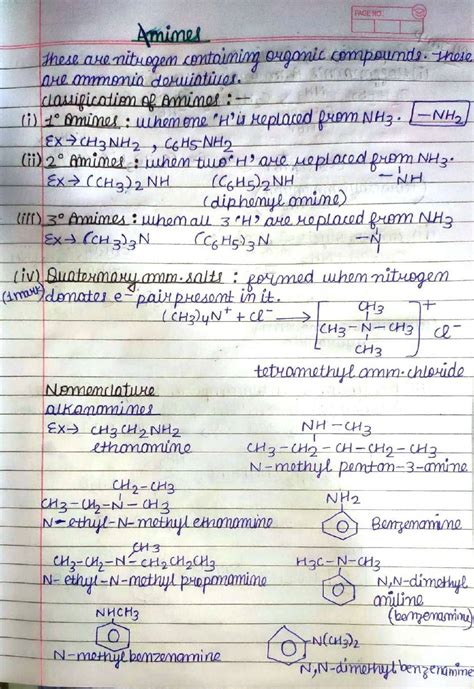 PAGE NO.
Amines
These are nitrogen containing organic compounds. These
are ammonia derivatives.
Classification of Amines :-
(i) 1° Amines : when one 'H' is replaced from NH3. -NH2
Ex→ CH3NH2 , C6H5NH2
(ii) 2° Amines : when two 'H' are replaced from NH3.
Ex→ (CH3)2NH (C6H5)2NH -NH
(diphenyl amine)
(iii) 3° Amines : when all 3 'H' are replaced from NH3
Ex→ (CH3)3N (C6H5)3N -N
(iv) Quaternary amm. salts : formed when nitrogen
(1mark) donates e- pair present in it.
(CH3)4N+ + Cl- → [CH3-N-CH3]+ Cl-
CH3
CH3
tetramethyl amm. chloride
Nomenclature
alkanamines
Ex→ CH3CH2NH2
ethanamine
NH-CH3
CH3-CH2-CH-CH2-CH3
N-methyl pentan-3-amine
CH2-CH3
CH3-CH2-N-CH3
N-ethyl-N-methyl ethanamine
NH2
Benzenamine
CH3
CH3-CH2-N-CH2CH2CH3
N-ethyl-N-methyl propanamine
H3C-N-CH3
N,N-dimethyl
aniline
(benzenamine)
NHCH3
N-methylbenzenamine
N(CH3)2
N,N-dimethylbenzenamine